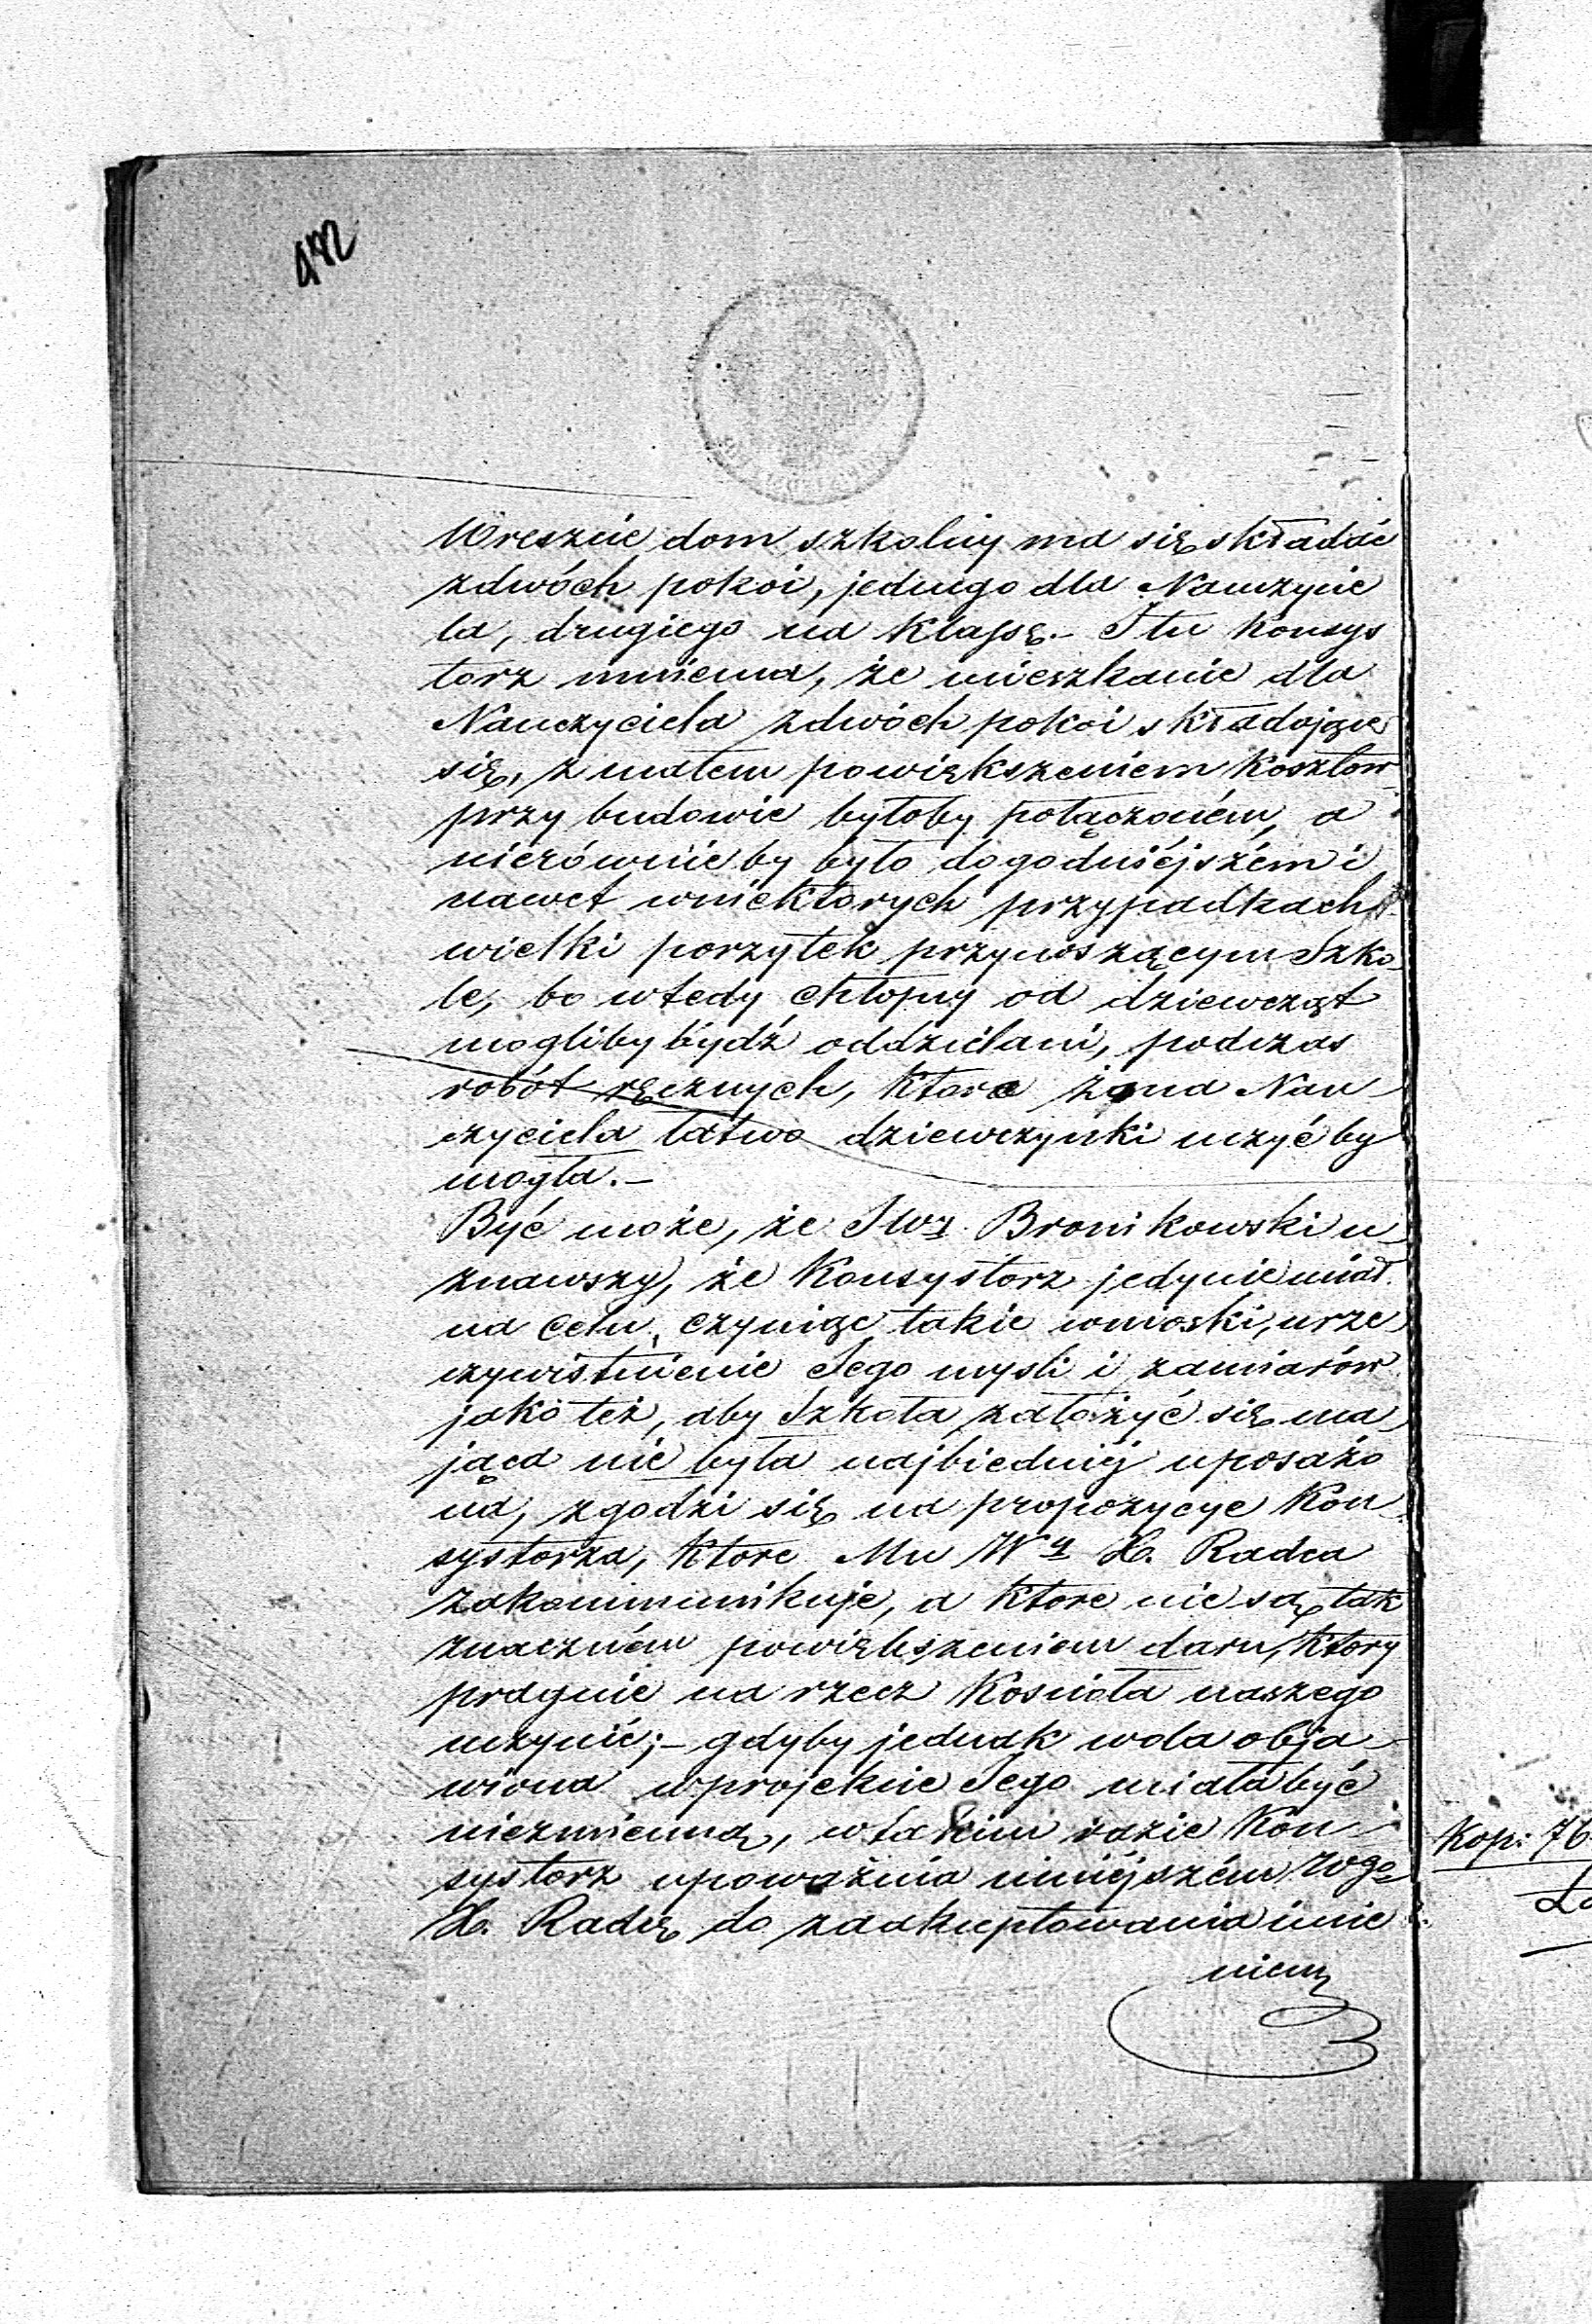 Wreszcie dom szkolny ma się składać
z dwóch pokoi, jednego dla Nauczycie
la, drugiego na Klassę.- I tu Konsys
torz mniema, że mieszkanie dla
Nauczyciela z dwóch pokoi składające
się, z małem powiększeniem Kosztów
przy budowie byłoby połączoném, a
nierównie by było dogodniéjszém i
nawet w niektorych przypadkach
wielki porzytek przynoszącym Szko-
le, bo wtedy chłopcy od dziewcząt
mogliby bydź oddzielani, podczas
robót ręcznych, które żona Nau-
czyciela łatwo dziewczynki uczyć by
mogła.-
Być może, że JWy Bronikowski u-
znawszy, że Konsystorz jedynie miał
na celu, czyniąc takie wnioski, urze
czywistnienie Jego mysli i zamiarów
jako też, aby Szkoła założyć się ma
jąca nie była najbiedniéj uposażo
na, zgodzi się na propozycye Kon-
systorza, ktore Mu Wy X. Radca
zakommunikuje, a ktore nie są tak
znaczném powiększeniem daru, ktory
pragnie na rzecz Kosciola naszego
uczynić;- gdyby jednak wola obja-
wiona w projekcie Jego miała być
niezmienną, w takim razie Kon-
systorz upoważnia niniéjszém Wgo
X. Radcę do zaakceptowania imie
niem
Kop: 76